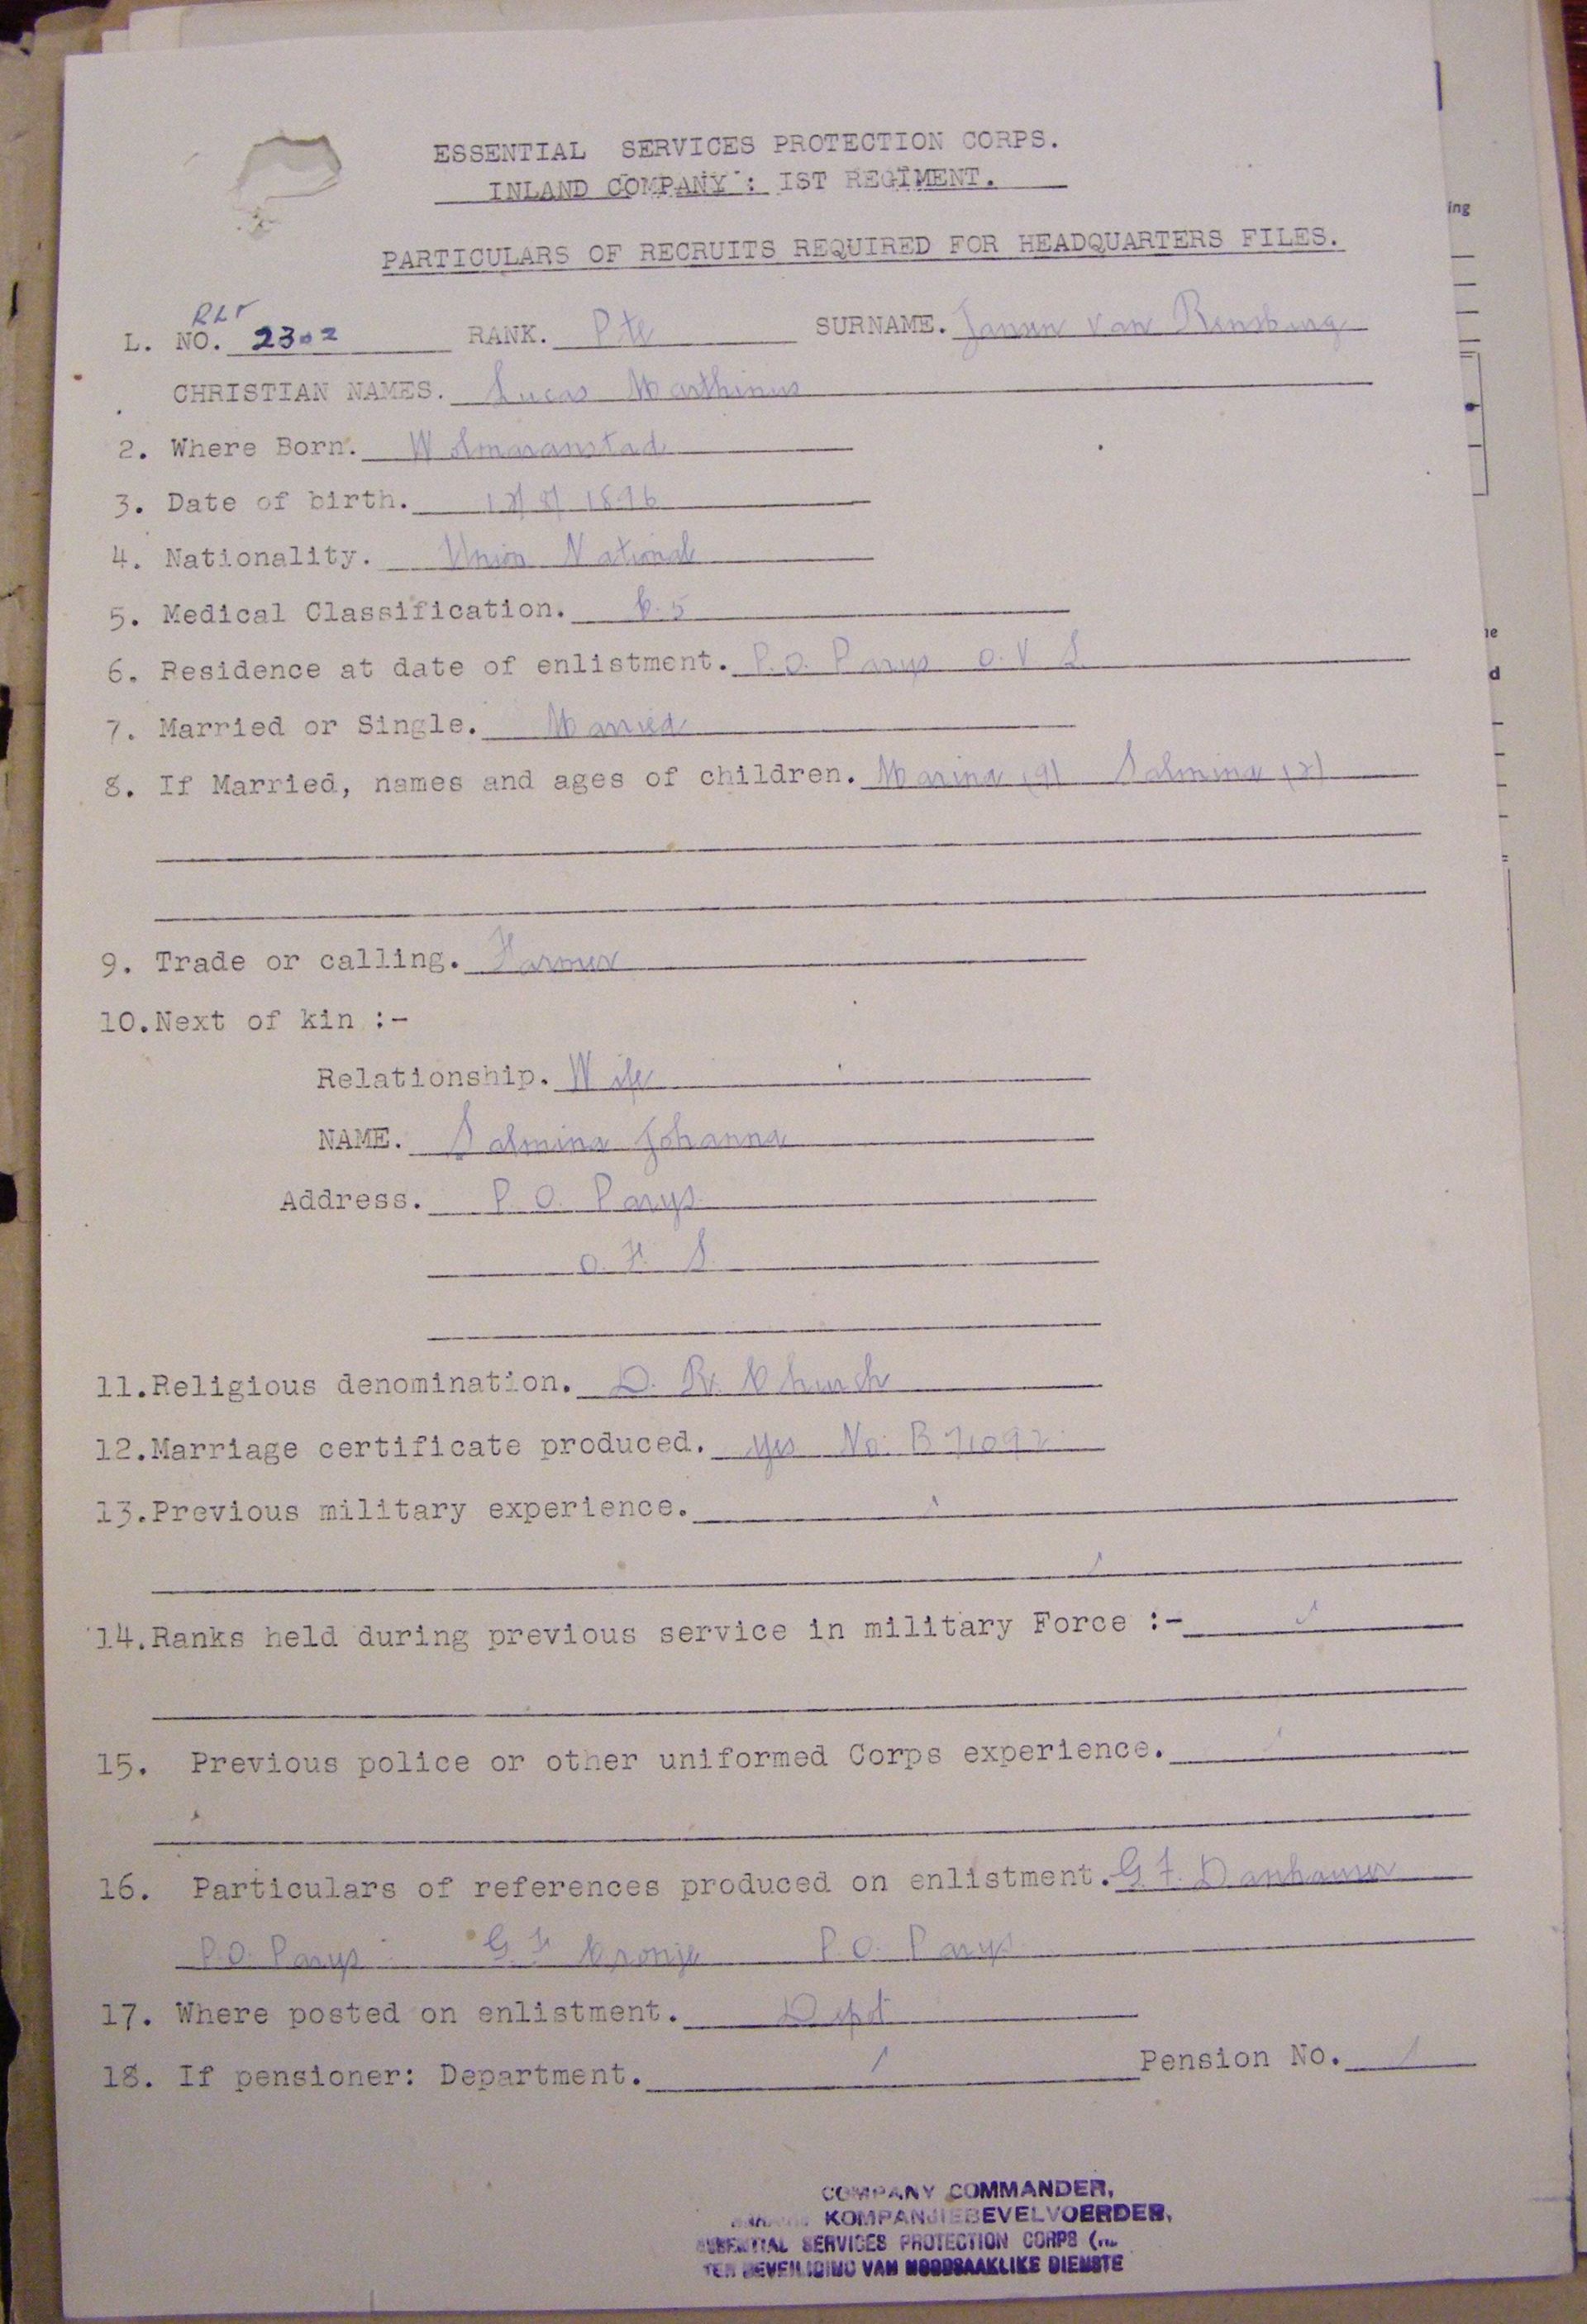 ESSENTIAL SERVICES PROTECTION CORPS.
INLAND COMPANY : IST REGIMENT.
PARTICULARS OF RECRUITS REQUIRED FOR HEADQUARTERS FILES.
L. NO. 2302 RANK. Pte SURNAME. Jansen van Rensburg
CHRISTIAN NAMES. Lucas Marthinus
2. Where Born. Wolmaranstad
3. Date of birth. 1896
4. Nationality. Union National
5. Medical Classification. C.5
6. Residence at date of enlistment. P.O. Parys O.V.S.
7. Married or Single. Married
8. If Married, names and ages of children. Marina (9) Salmina (2)
9. Trade or calling. Farmer
10. Next of kin :-
Relationship. Wife
NAME. Salmina Johanna
Address. P.O. Parys
O. F. S.
11. Religious denomination. D. R. Church
12. Marriage certificate produced. Yes No.
13. Previous military experience.
14. Ranks held during previous service in military Force :-
15. Previous police or other uniformed Corps experience.
16. Particulars of references produced on enlistment. G. F. Danhauser
P.O. Parys G. F. Cronje P.O. Parys
17. Where posted on enlistment. Depot
18. If pensioner: Department. Pension No.
COMPANY COMMANDER,
KOMPANJIEBEVELVOERDER,
ESSENTIAL SERVICES PROTECTION CORPS
TER BEVEILIGING VAN NOODSAAKLIKE DIENSTE
ing